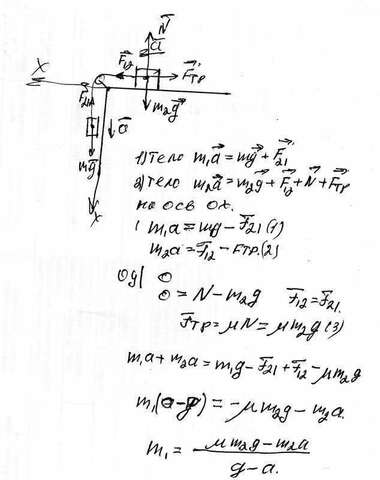 N
a
F₁₂
Fтр
X
F₂₁
m₂g
a
mg
X
1) тело m₁a = mg + F₂₁
2) тело m₂a = m₂g + F₁₂ + N + Fтр
на ось ОХ.
m₁a = mg - F₂₁ (1)
m₂a = F₁₂ - Fтр. (2)
Оу|
0 = N - m₂g F₁₂ = F₂₁.
Fтр = μN = μm₂g (3)
m₁a + m₂a = m₁g - F₂₁ + F₁₂ - μm₂g
m₁(a-g) = -μm₂g - m₂a.
m₁ = μm₂g - m₂a / g - a.